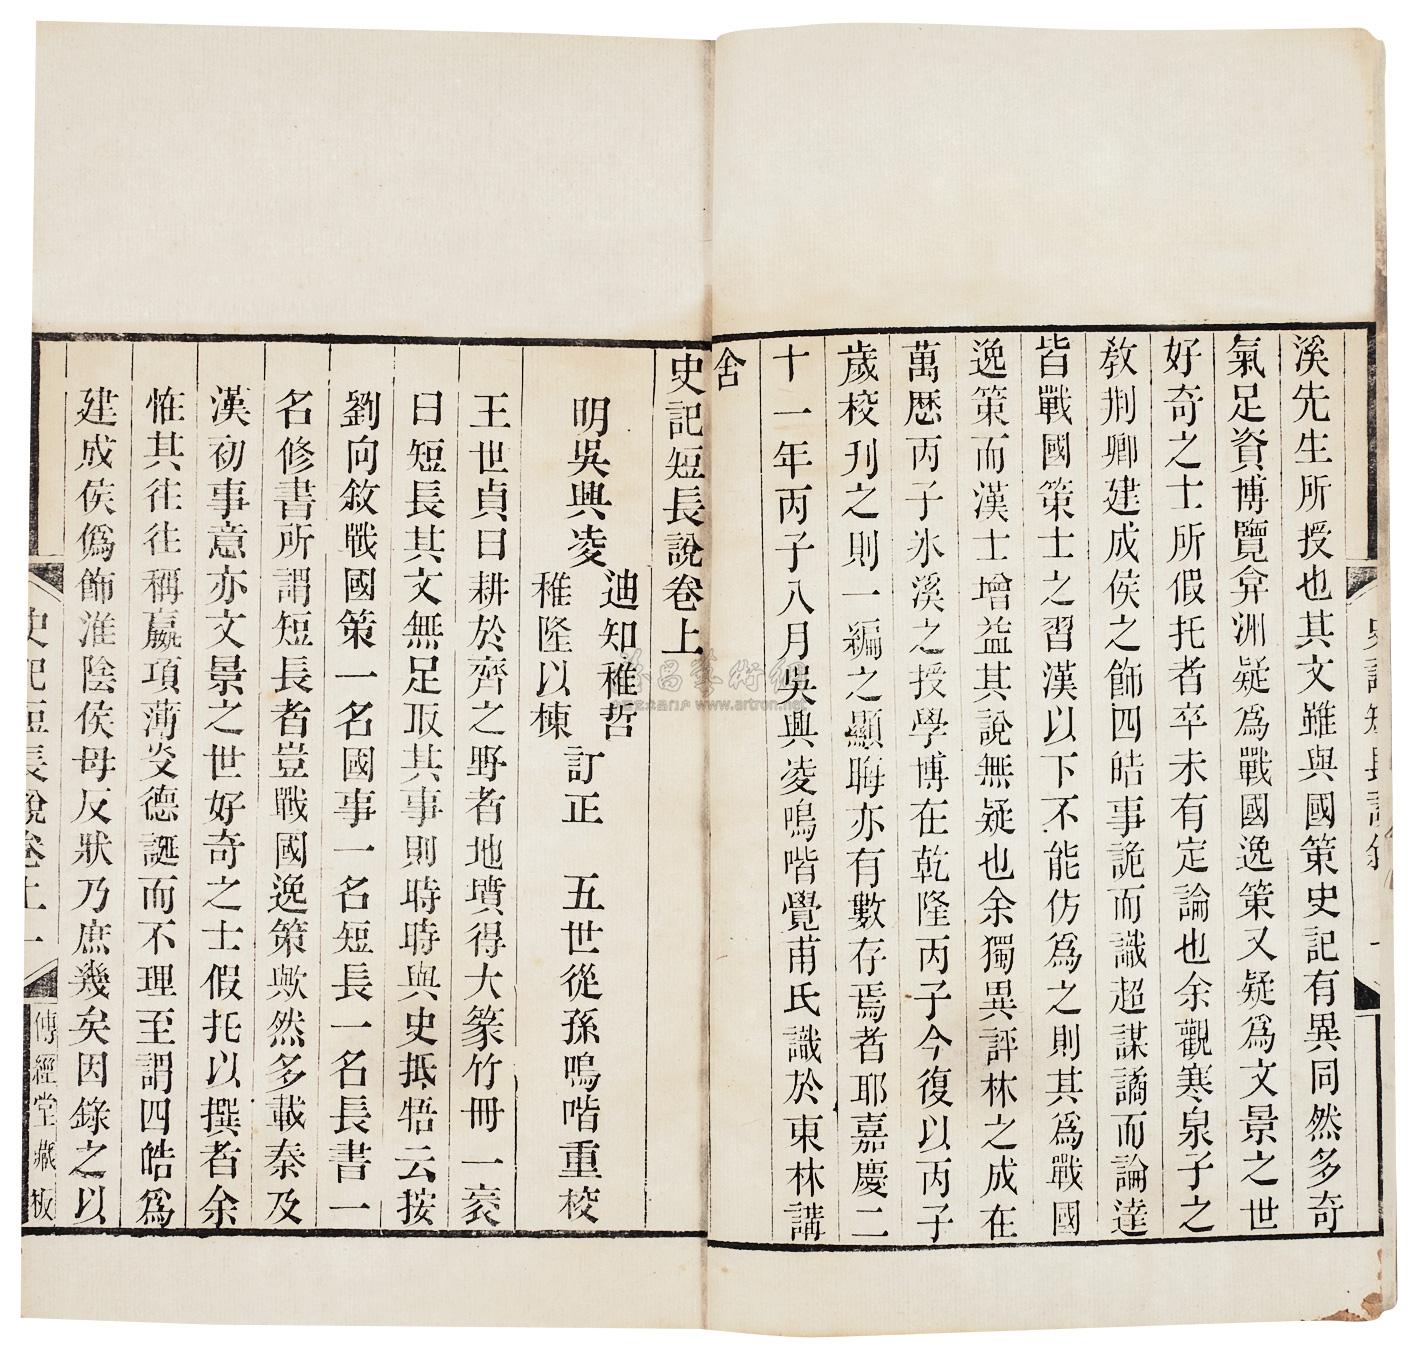 溪先生所授也其文雖與國策史記有異同然多奇
氣足資博覽弇洲疑爲戰國逸策又疑爲文景之世
好奇之士所假托者卒未有定論也余觀寒泉子之
教荆卿建成侯之飾四皓事詭而識超謀譎而論達
皆戰國策士之習漢以下不能仿爲之則其爲戰國
逸策而漢士增益其說無疑也余獨異評林之成在
萬厯丙子氷溪之授學博在乾隆丙子今復以丙子
歲校刊之則一編之顯晦亦有數存焉者耶嘉慶二
十一年丙子八月吳興凌鳴喈覺甫氏識於東林講
舍
史記短長說卷上
明吳興凌 迪知稚哲 稚隆以棟 訂正 五世從孫鳴喈重校
王世貞曰耕於齊之野者地墳得大篆竹冊一袠
曰短長其文無足取其事則時時與史抵牾云按
劉向敘戰國策一名國事一名短長一名長書一
名修書所謂短長者豈戰國逸策歟然多載秦及
漢初事意亦文景之世好奇之士假托以撰者余
惟其往往稱嬴項薄炎德誕而不理至謂四皓爲
建成侯僞飾淮陰侯母反狀乃庶幾矣因錄之以
史記短長說卷上 一
傳經堂藏板
www.artron.net